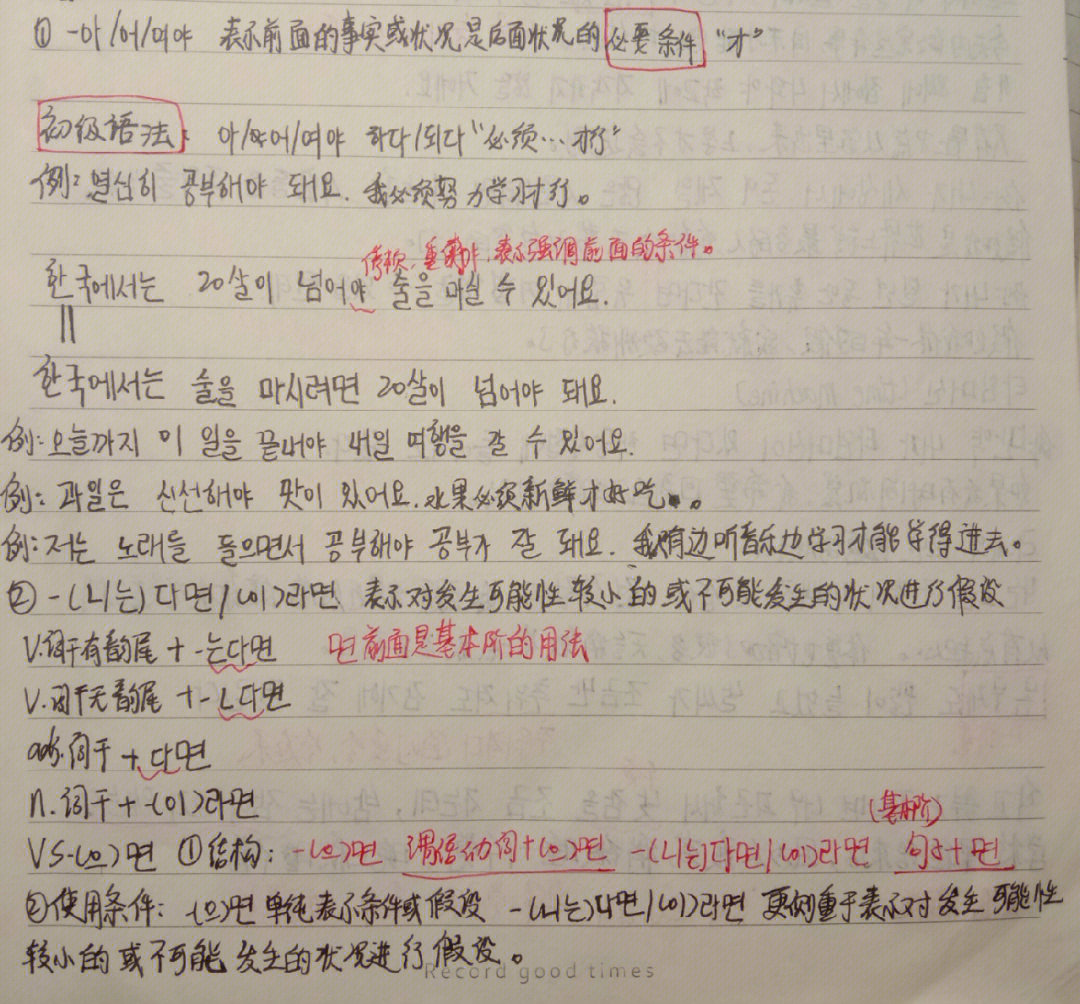 ① -아/어/여야 表示前面的事实或状况是后面状况的必要条件 "才"
初级语法: 아/어/여야 하다/되다 "必须…才行"
例: 열심히 공부해야 돼요. 我必须努力学习才行。
停顿、重音, 表示强调前面的条件。
한국에서는 20살이 넘어야 술을 마실 수 있어요.
||
한국에서는 술을 마시려면 20살이 넘어야 돼요.
例: 오늘까지 이 일을 끝내야 내일 여행을 갈 수 있어요.
例: 과일은 신선해야 맛이 있어요. 水果必须新鲜才好吃。
例: 저는 노래를 들으면서 공부해야 공부가 잘 돼요. 我边听音乐边学习才能学得进去。
② -(ㄴ/는)다면/(이)라면 表示对发生可能性较小的或不可能发生的状况进行假设
V.词干有韵尾 + -는다면 면前面是基本阶的用法
V.词干无韵尾 + -ㄴ다면
adj.词干 + 다면
n.词干 + -(이)라면
(基本阶)
VS-(으)면 ①结构: -(으)면 谓语动词+(으)면 -(ㄴ/는)다면/(이)라면 句子+면
②使用条件: -(으)면 单纯表示条件或假设 -(ㄴ/는)다면/(이)라면 更侧重于表示对发生可能性
较小的或不可能发生的状况进行假设。
Record good times